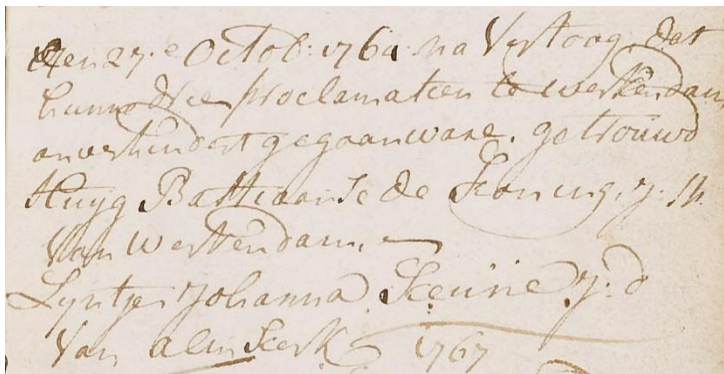 Den 27.e Octob: 1760 na Vertoog, dat
hunne drie proclamatien te werkendam
onverhindert gegaan ware. getrouwd
Huijg Bastiaanse de Koning, j: M.
Van Werkendam,
Lijntje Johanna Keune j: d
Van almkerk 1767